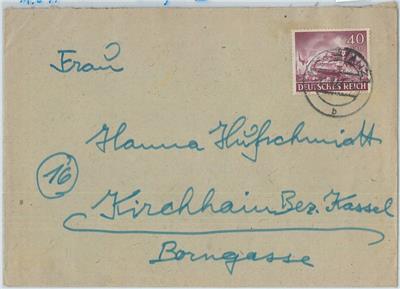 40
DEUTSCHES REICH
b
Frau
Hanna Hufschmidt
16
Kirchhain Bez. Kassel
Borngasse